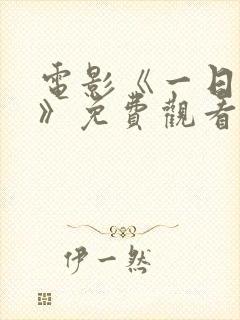 電影《一日
》免費觀看
伊一然